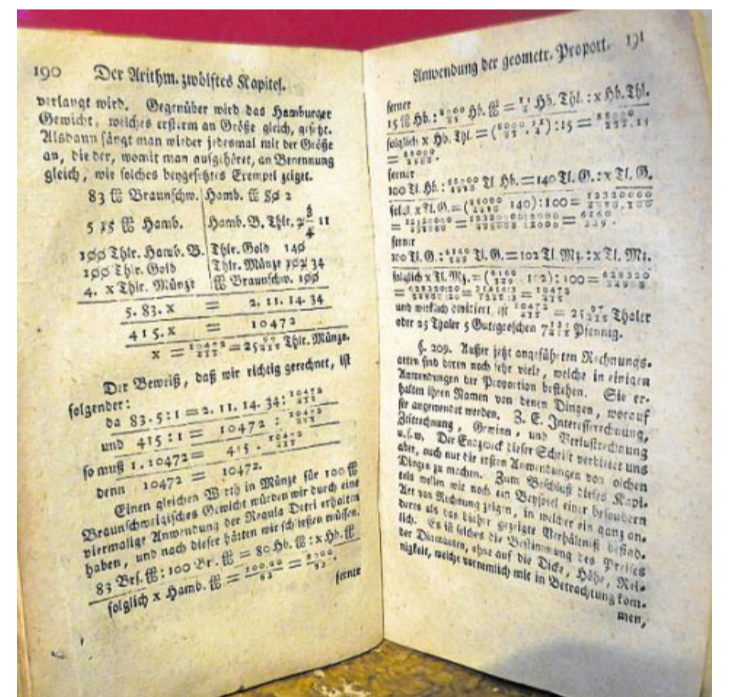 190 Der Arithm. zwölftes Kapitel.
verlangt wird. Gegenüber wird das Hamburger
Gewicht, welches ersterm an Größe gleich, gesetzt.
Alsdann fängt man wieder jedesmal mit der Größe
an, die der, womit man aufgehöret, an Benennung
gleich, wie solches beygesetztes Exempel zeiget.
83 ℔ Braunschw. Hamb. ℔ 80 2
5 15 ℔ Hamb. Hamb. B. Thlr. 11
100 Thlr. Hamb. B. Thlr. Gold 140
100 Thlr. Gold Thlr. Münze 102 34
4. x Thlr. Münze ℔ Braunschw. 100
5. 83. x = 2. 11. 14. 34
415. x = 10472
x = 10472/415 = 25 97/415 Thlr. Münze.
Der Beweiß, daß wir richtig gerechnet, ist
folgender:
da 83. 5 : 1 = 2. 11. 14. 34 : 10472/415
und 415 : 1 = 10472 : 10472/415
so muß 1. 10472 = 415 . 10472/415
denn 10472 = 10472.
Einen gleichen Werth in Münze für 100 ℔
Braunschweigisches Gewicht würden wir durch eine
viermalige Anwendung der Regula Detri erhalten
haben, und nach dieser hätten wir schließen müssen.
83 Brs. ℔ : 100 Br. ℔ = 80 Hb. ℔ : x Hb. ℔
folglich x Hamb. ℔ = 100.80/83 = 8000/83.
ferner
Anwendung der geometr. Proport. 191
ferner
15 ℔ Hb. : 8000/83 Hb. ℔ = 11/4 Hb. Thl. : x Hb. Thl.
folglich x Hb. Thl. = (8000/83 . 11/4) : 15 =
ferner
100 Tl. Hb. : Tl Hb. = 140 Tl. G. : x Tl. G.
folgl. x Tl. G. = ( 140) : 100 =
ferner
100 Tl. G. : Tl. G. = 102 Tl. Mz. : x Tl. Mz.
folglich x Tl. Mz. = ( 102) : 100 =
= 10472/415
und wirklich dividiert, ist 10472/415 = 25 97/415 Thaler
oder 25 Thaler 5 Gutegroschen 7 Pfennig.
§. 209. Außer jetzt angeführten Rechnungs-
arten sind deren noch sehr viele, welche in einigen
Anwendungen der Proportion bestehen. Sie er-
halten ihren Namen von denen Dingen, worauf
sie angewendet werden. Z. E. Interesserechnung,
Zeitrechnung, Gewinn- und Verlustrechnung
u. s. w. Der Endzweck dieser Schrift verbietet uns
aber, auch nur die ersten Anwendungen von solchen
Dingen zu machen. Zum Beschluß dieses Kapi-
tels wollen wir noch ein Beyspiel einer besondern
Art von Rechnung zeigen, in welcher ein ganz an-
deres als das bisher gezeigte Verhältniß befind-
lich. Es ist solches die Bestimmung des Preises
der Diamanten, ohne auf die Dicke, Höhe, Rei-
nigkeit, welche vornemlich mit in Betrachtung kom-
men,